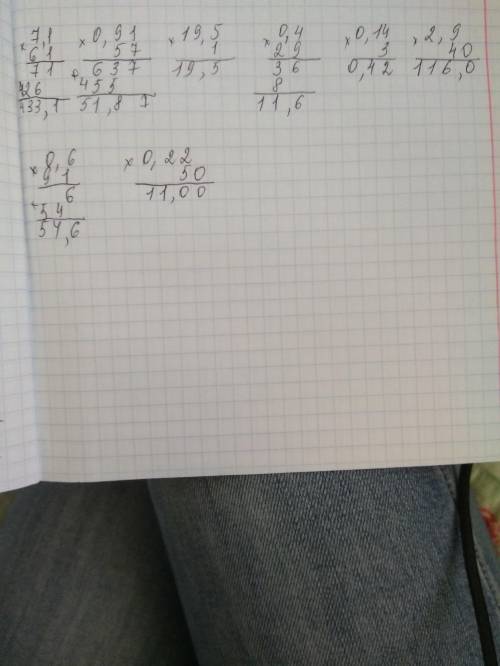 × 7,1
6 1
7 1
4 2 6
4 3 3, 1
× 0, 9 1
5 7
+ 6 3 7
4 5 5
5 1, 8 7
× 1 9, 5
1
1 9, 5
× 0, 4
2 9
3 6
8
1 1, 6
× 0, 1 4
3
0, 4 2
× 2, 9
4 0
1 1 6, 0
× 0, 6
9 1
6
+ 5 4
5 4, 6
× 0, 2 2
5 0
1 1, 0 0